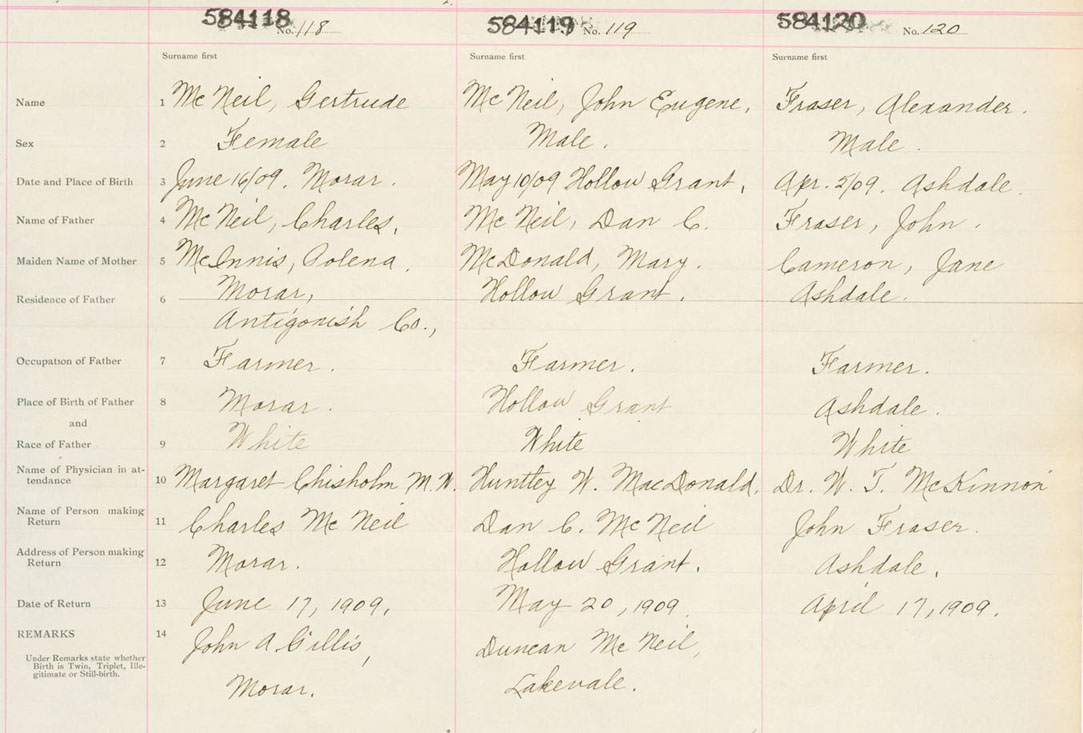 584118 No. 118 584119 No. 119 584120 No. 120
Surname first Surname first Surname first
Name 1 McNeil, Gertrude McNeil, John Eugene, Fraser, Alexander.
Sex 2 Female Male. Male.
Date and Place of Birth 3 June 16/09. Morar. May 10/09 Hollow Grant, Apr. 5/09. Ashdale.
Name of Father 4 McNeil, Charles, McNeil, Dan C. Fraser, John.
Maiden Name of Mother 5 McInnis, Polena. McDonald, Mary. Cameron, Jane
Residence of Father 6 Morar, Hollow Grant. Ashdale.
Antigonish Co.,
Occupation of Father 7 Farmer. Farmer. Farmer.
Place of Birth of Father 8 Morar. Hollow Grant Ashdale.
and
Race of Father 9 White White White
Name of Physician in at-
tendance 10 Margaret Chisholm M.W. Huntley W. MacDonald. Dr. W. F. McKinnon
Name of Person making
Return 11 Charles McNeil Dan C. McNeil John Fraser.
Address of Person making
Return 12 Morar. Hollow Grant. Ashdale.
Date of Return 13 June 17, 1909, May 20, 1909 April 17, 1909.
REMARKS 14 John A. Gillis, Duncan McNeil,
Under Remarks state whether
Birth is Twin, Triplet, Ille-
gitimate or Still-birth.
Morar. Lakevale.